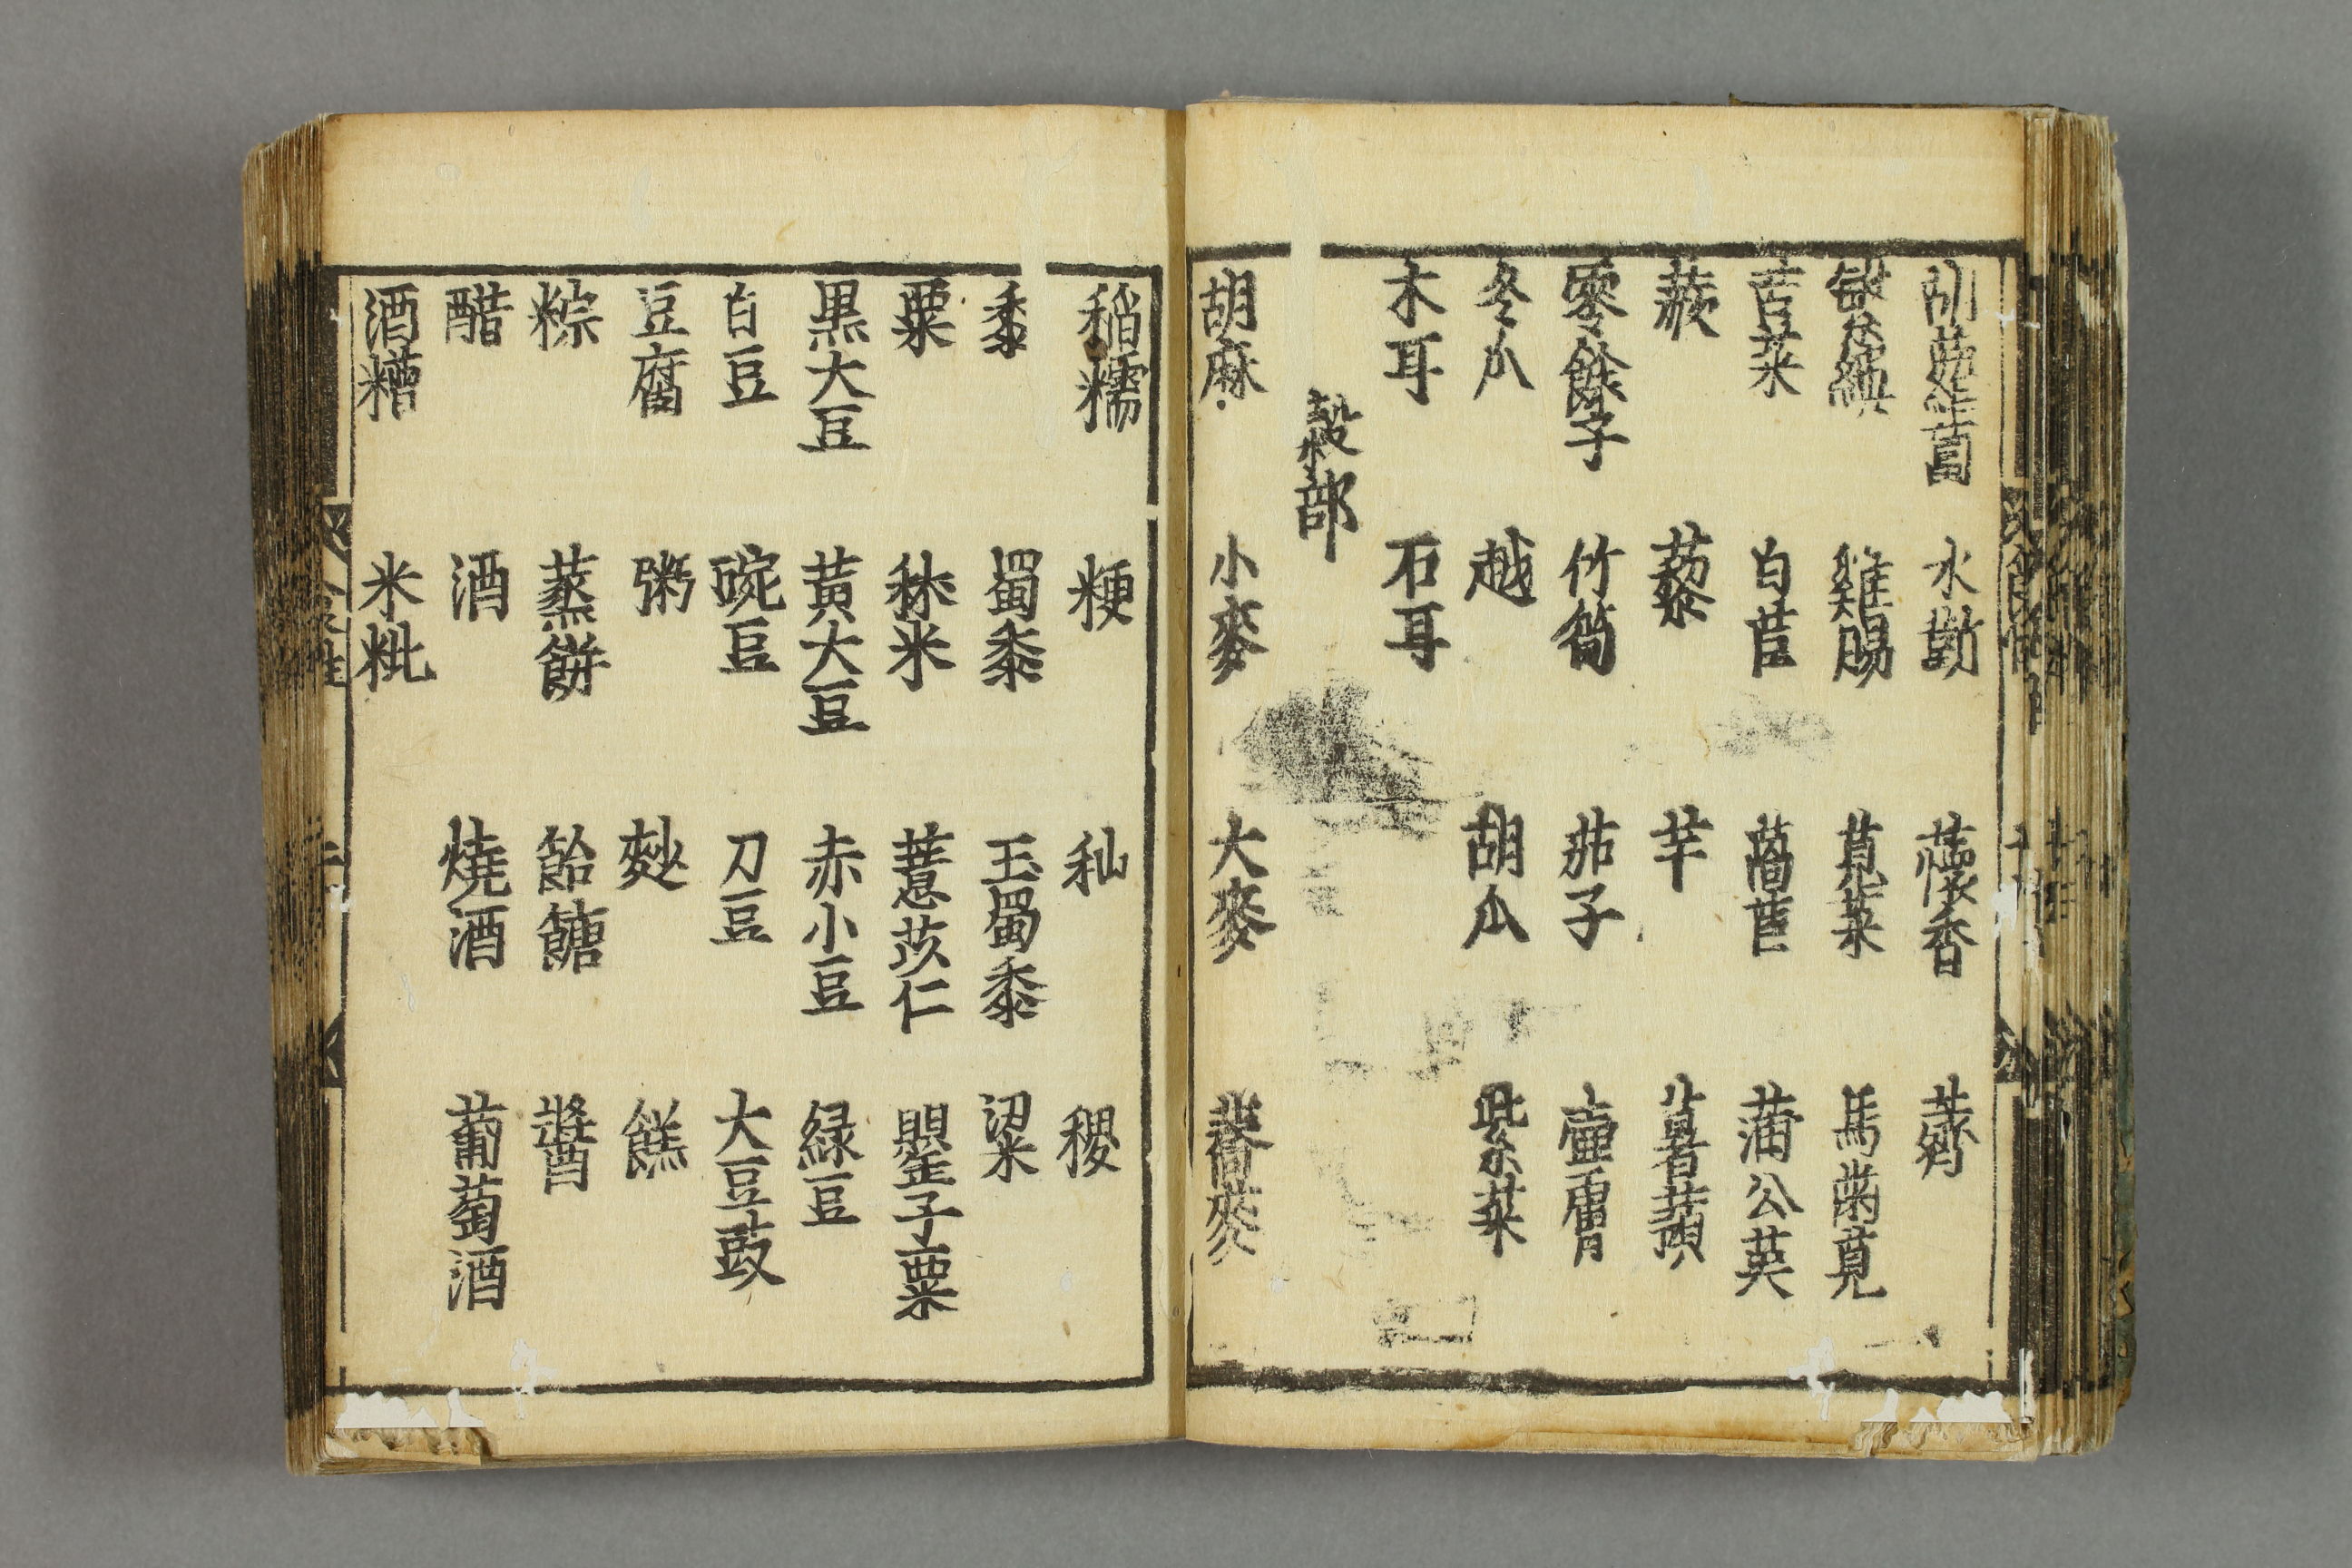 胡蘿蔔 水蘄 蘹香 薺
雞腸 莧菜 馬齒莧
苦菜 白苣 萵苣 蒲公英
蕨 藜 芋 薯蕷
零餘子 竹筍 茄子 壷盧
冬瓜 越 胡瓜 紫菜
木耳 石耳
穀部
胡麻 小麥 大麥 蕎麥
稲糯 粳 秈 稷
黍 蜀黍 玉蜀黍 粱
粟 秫米 薏苡仁 罌子粟
黒大豆 黄大豆 赤小豆 緑豆
白豆 豌豆 刀豆 大豆豉
豆腐 粥 麨 餻
粽 蒸餅 飴餹 醬
醋 酒 燒酒 葡萄酒
酒糟 米粃